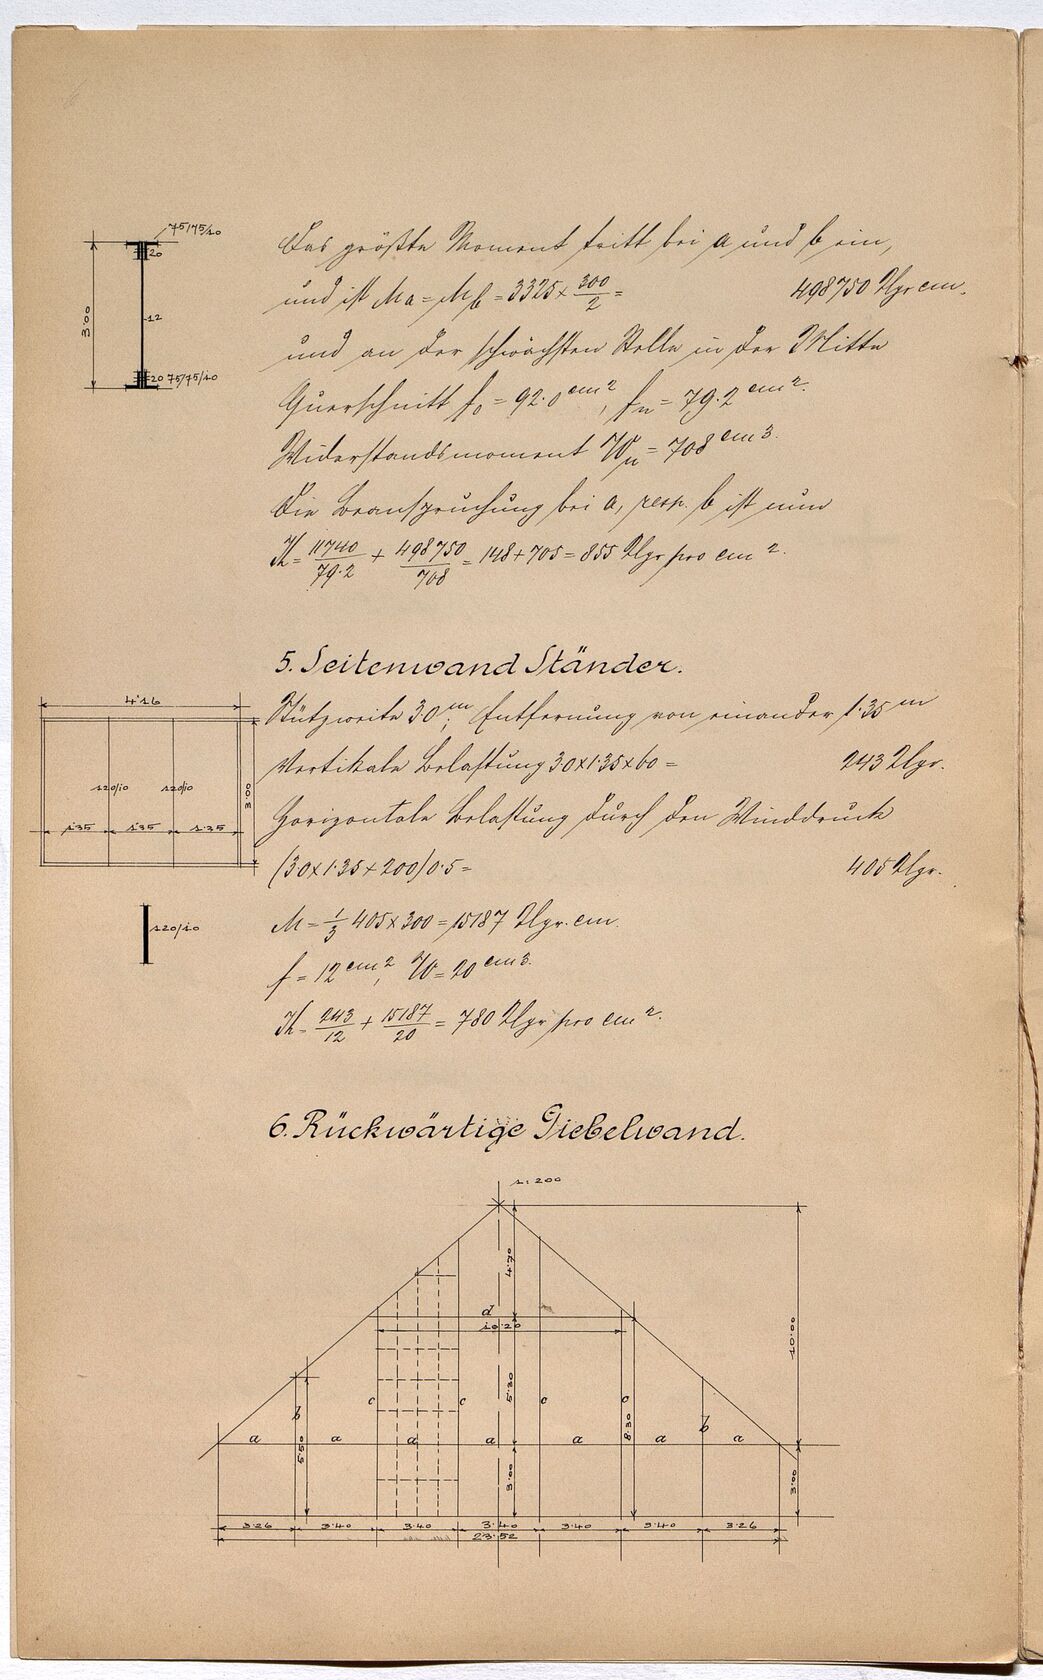 75/75/10
20
300
12
20 75/75/10
Das größte Moment tritt bei a und b ein,
und ist Ma = Mb = 3325 × 300/2 = 498750 Klgr cm.
und an der schwächsten Stelle in der Mitte
Querschnitt f₀ = 92.0 cm², fn = 79.2 cm².
Widerstandsmoment Wn = 708 cm3.
Die Beanspruchung bei a, resp. b ist nun
K = 11740/79.2 + 498750/708 = 148 + 705 = 855 Klgr pro cm².
5. Seitenwand Ständer.
4.16
120/10 120/10
3.00
1.35 1.35 1.35
Stützweite 3.0 m; Entfernung von einander 1.35 m
Vertikale Belastung 3.0×1.35×60 = 243 Klgr.
Horizontale Belastung durch den Winddruck
(3.0×1.35×200)0.5 = 405 Klgr.
120/10
M = 1/3 405×300 = 15187 Klgr.cm.
f = 12 cm², W = 20 cm3.
K = 243/12 + 15187/20 = 780 Klgr pro cm².
6. Rückwärtige Giebelwand.
1:200
4.70
d
10.20
10.00
c c 5.30 c c
b b
8.30
a a a a a a a
5.50
3.00
3.00
3.26 3.40 3.40 3.40 3.40 3.40 3.26
23.52